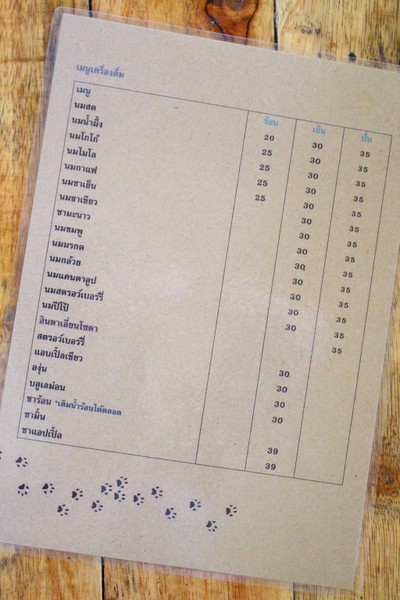 เมนูเครื่องดื่ม
เมนู ร้อน เย็น ปั่น
นมสด 20 30 35
นมน้ำผึ้ง 25 30 35
นมโกโก้ 25 30 35
นมไมโล 25 30 35
นมกาแฟ 25 30 35
นมชาเย็น 30 35
นมชาเขียว 30 35
ชามะนาว 30 35
นมชมพู 30 35
นมมรกต 30 35
นมกล้วย 30 35
นมแคนตาลูป 30 35
นมสตรอว์เบอร์รี่ 30 35
นมปีโป้ 35
อินตาเลี่ยนโซดา
สตรอว์เบอร์รี่ 30
แอบเปิ้ลเขียว 30
องุ่น 30
บลูเลม่อน 30
ชาร้อน *เติมน้ำร้อนได้ตลอด
ชามิ้น 39
ชาแอปเปิ้ล 39